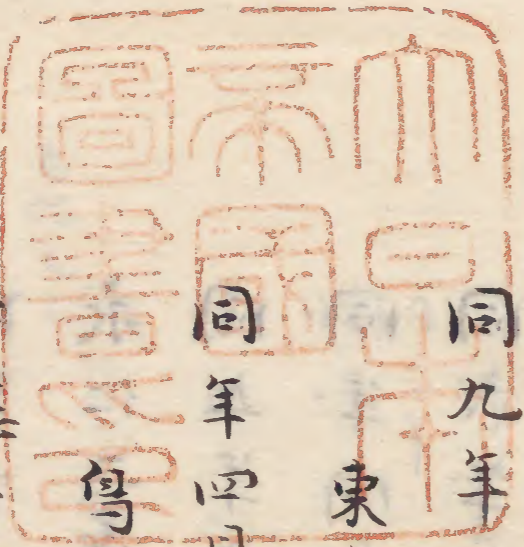 大日本
帝國
圖書印
同九年
東
同年四月